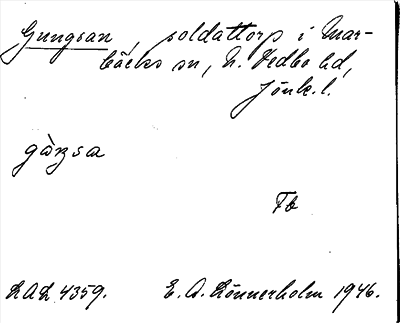 Gungsan, soldattorp i Mar-
bäcks sn, N. Vedbo hd,
Jönk. l.
Fb
LAL 4359. E. A. Lönnerholm 1946.